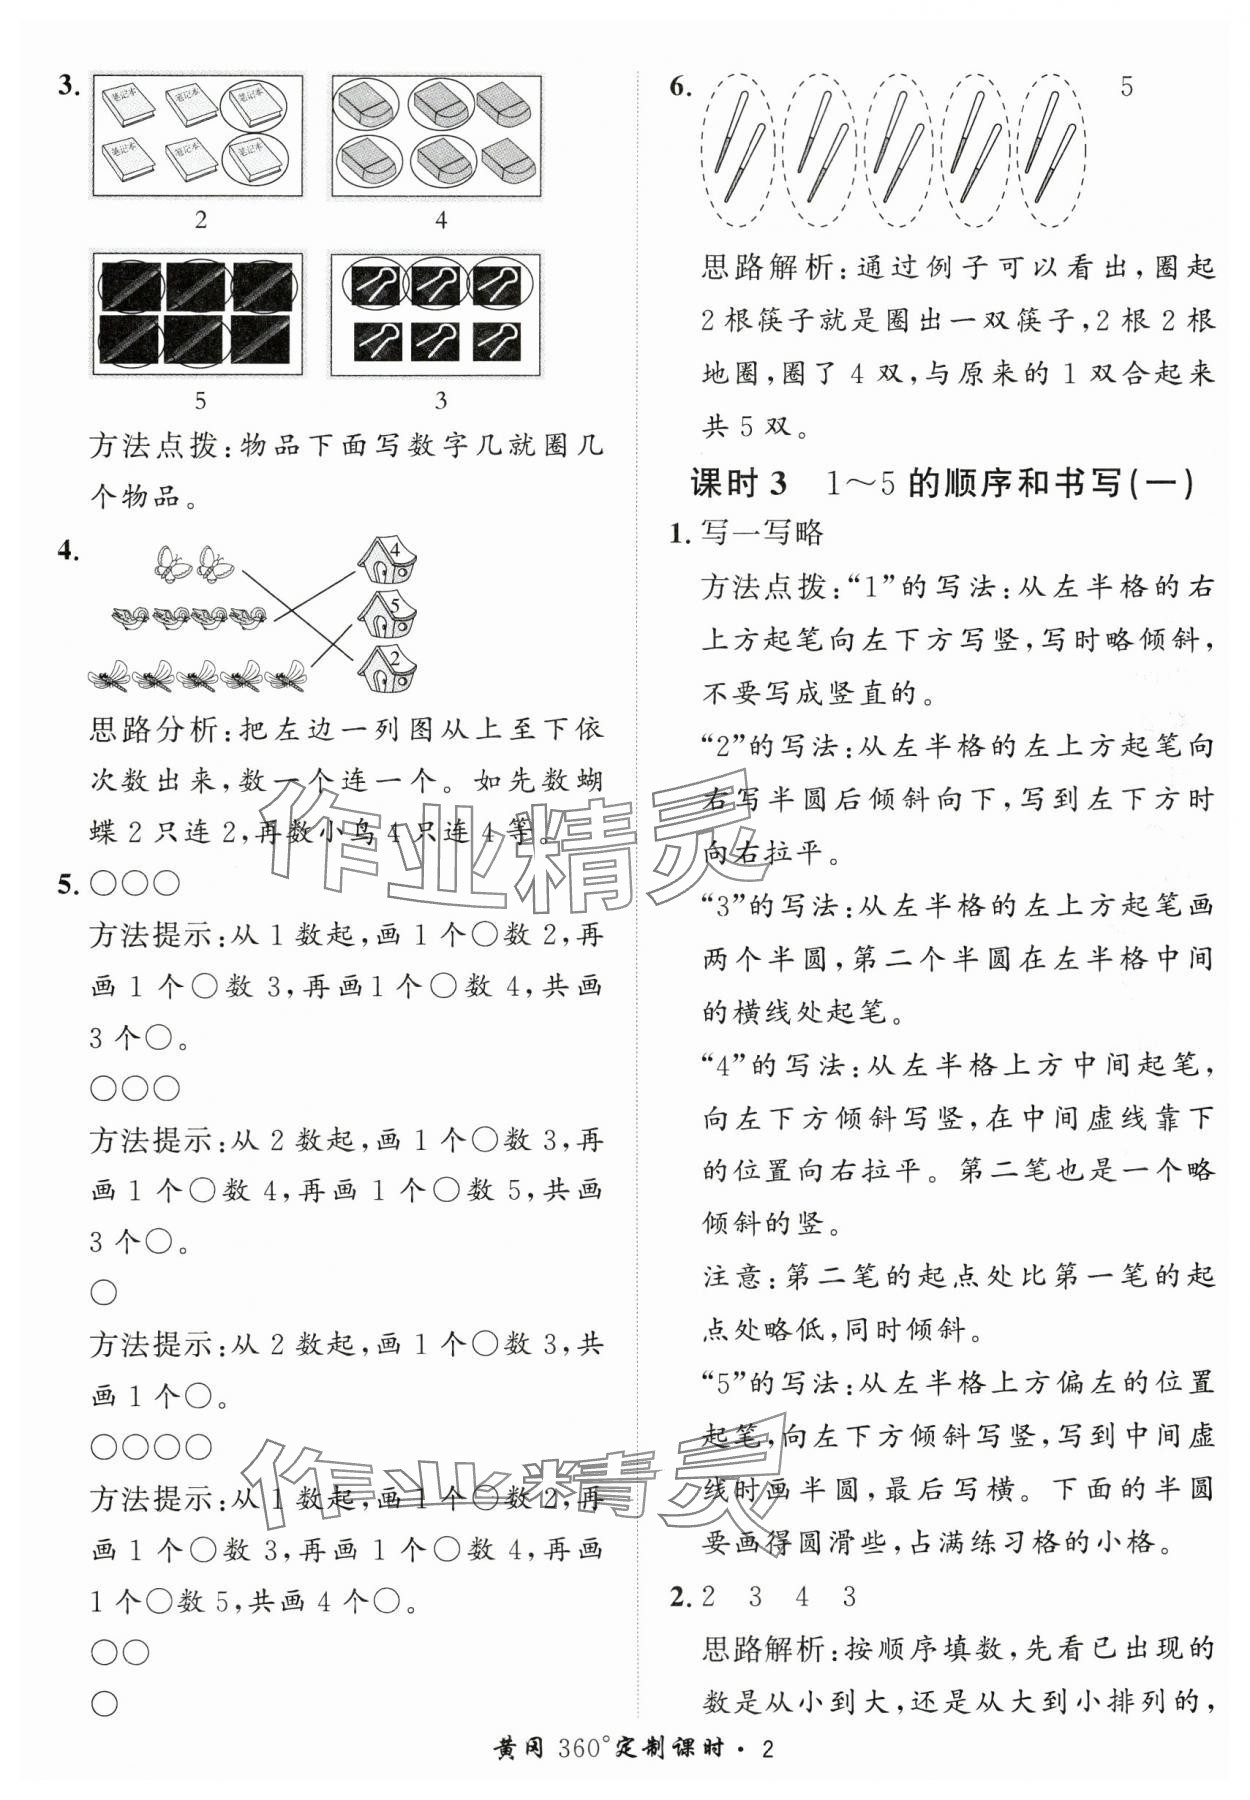 3.
笔记本 笔记本 笔记本
笔记本 笔记本 笔记本
2 4
5 3
方法点拨:物品下面写数字几就圈几
个物品。
4.
4
5
2
思路分析:把左边一列图从上至下依
次数出来,数一个连一个。如先数蝴
蝶2只连2,再数小鸟4只连4等。
5. ○○○
方法提示:从1数起,画1个○数2,再
画1个○数3,再画1个○数4,共画
3个○。
○○○
方法提示:从2数起,画1个○数3,再
画1个○数4,再画1个○数5,共画
3个○。
○
方法提示:从2数起,画1个○数3,共
画1个○。
○○○○
方法提示:从1数起,画1个○数2,再
画1个○数3,再画1个○数4,再画
1个○数5,共画4个○。
○○
○
6. 5
思路解析:通过例子可以看出,圈起
2根筷子就是圈出一双筷子,2根2根
地圈,圈了4双,与原来的1双合起来
共5双。
课时3 1～5的顺序和书写(一)
1. 写一写略
方法点拨:“1”的写法:从左半格的右
上方起笔向左下方写竖,写时略倾斜,
不要写成竖直的。
“2”的写法:从左半格的左上方起笔向
右写半圆后倾斜向下,写到左下方时
向右拉平。
“3”的写法:从左半格的左上方起笔画
两个半圆,第二个半圆在左半格中间
的横线处起笔。
“4”的写法:从左半格上方中间起笔,
向左下方倾斜写竖,在中间虚线靠下
的位置向右拉平。第二笔也是一个略
倾斜的竖。
注意:第二笔的起点处比第一笔的起
点处略低,同时倾斜。
“5”的写法:从左半格上方偏左的位置
起笔,向左下方倾斜写竖,写到中间虚
线时画半圆,最后写横。下面的半圆
要画得圆滑些,占满练习格的小格。
2. 2 3 4 3
思路解析:按顺序填数,先看已出现的
数是从小到大,还是从大到小排列的,
作业精灵
作业精灵
黄冈 360°定制课时·2